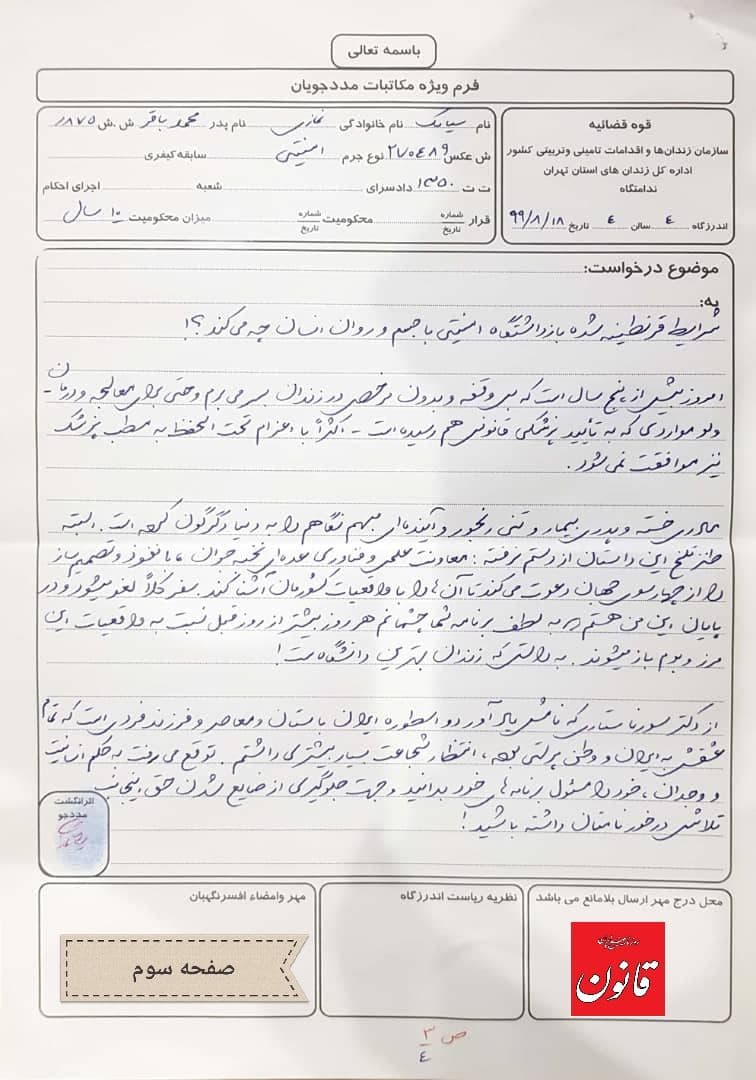 باسمه تعالی
فرم ویژه مکاتبات مددجویان
قوه قضائیه
سازمان زندان‌ها و اقدامات تامینی وتربیتی کشور
اداره کل زندان های استان تهران
ندامتگاه
اندرزگاه ٤ سالن ٤ تاریخ ۹۹/۸/۱۸
نام سیامک نام خانوادگی نمازی نام پدر محمد باقر ش.ش ۱۸۷۵
ش عکس ۲۷۰٤۸۹ نوع جرم امنیتی سابقه کیفری
ت ت ۱۳۵۰ دادسرای شعبه اجرای احکام
قرار شماره تاریخ محکومیت شماره تاریخ میزان محکومیت ۱۰ سال
موضوع درخواست:
به:
شرایط قرنطینه شده بازداشتگاه امنیتی با جسم و روان انسان چه می‌کند؟!
امروز بیش از پنج سال است که بی وقفه و بدون مرخصی در زندان بسر می برم و حتی برای معالجه و درمان -
ولو مواردی که به تأیید پزشکی قانونی هم رسیده است - اکثراً با اعزام تحت الحفظ به مطب پزشک
نیز موافقت نمی شود.
مادری خسته و پدری بیمار و تنی رنجور و آینده‌ای مبهم نگاهم را به دنیا دگرگون کرده است. البته
طنز تلخ این داستان از دستم نرفته: معاونت علمی و فناوری عده‌ای نخبه جوان، با نفوذ و تصمیم ساز
را از چهار سوی جهان دعوت می‌کند تا آن ها را با واقعیات کشورمان آشنا کند. سفر کلاً لغو میشود و در
پایان این من هستم که به لطف برنامه شما چشمانم هر روز بیشتر از روز قبل نسبت به واقعیات این
مرز و بوم باز میشوند. به راستی که زندان بهترین دانشگاه است!
از دکتر سورنا ستاری که نامش یادآور دو اسطوره ایران باستان و معاصر و فرزند فردی است که تمام
عشقش به ایران و وطن پرستی بود، انتظار شجاعت بسیار بیشتری داشتم. توقع می رفت به حکم انسانیت
و وجدان، خود را مسئول برنامه های خود بدانید و جهت جلوگیری از ضایع شدن حق اینجانب
تلاشی درخور نامتان داشته باشید!
اثرانگشت
مددجو
محل درج مهر ارسال بلامانع می باشد
نظریه ریاست اندرزگاه
مهر وامضاء افسرنگهبان
صفحه سوم
قانون
ص ۳
٤